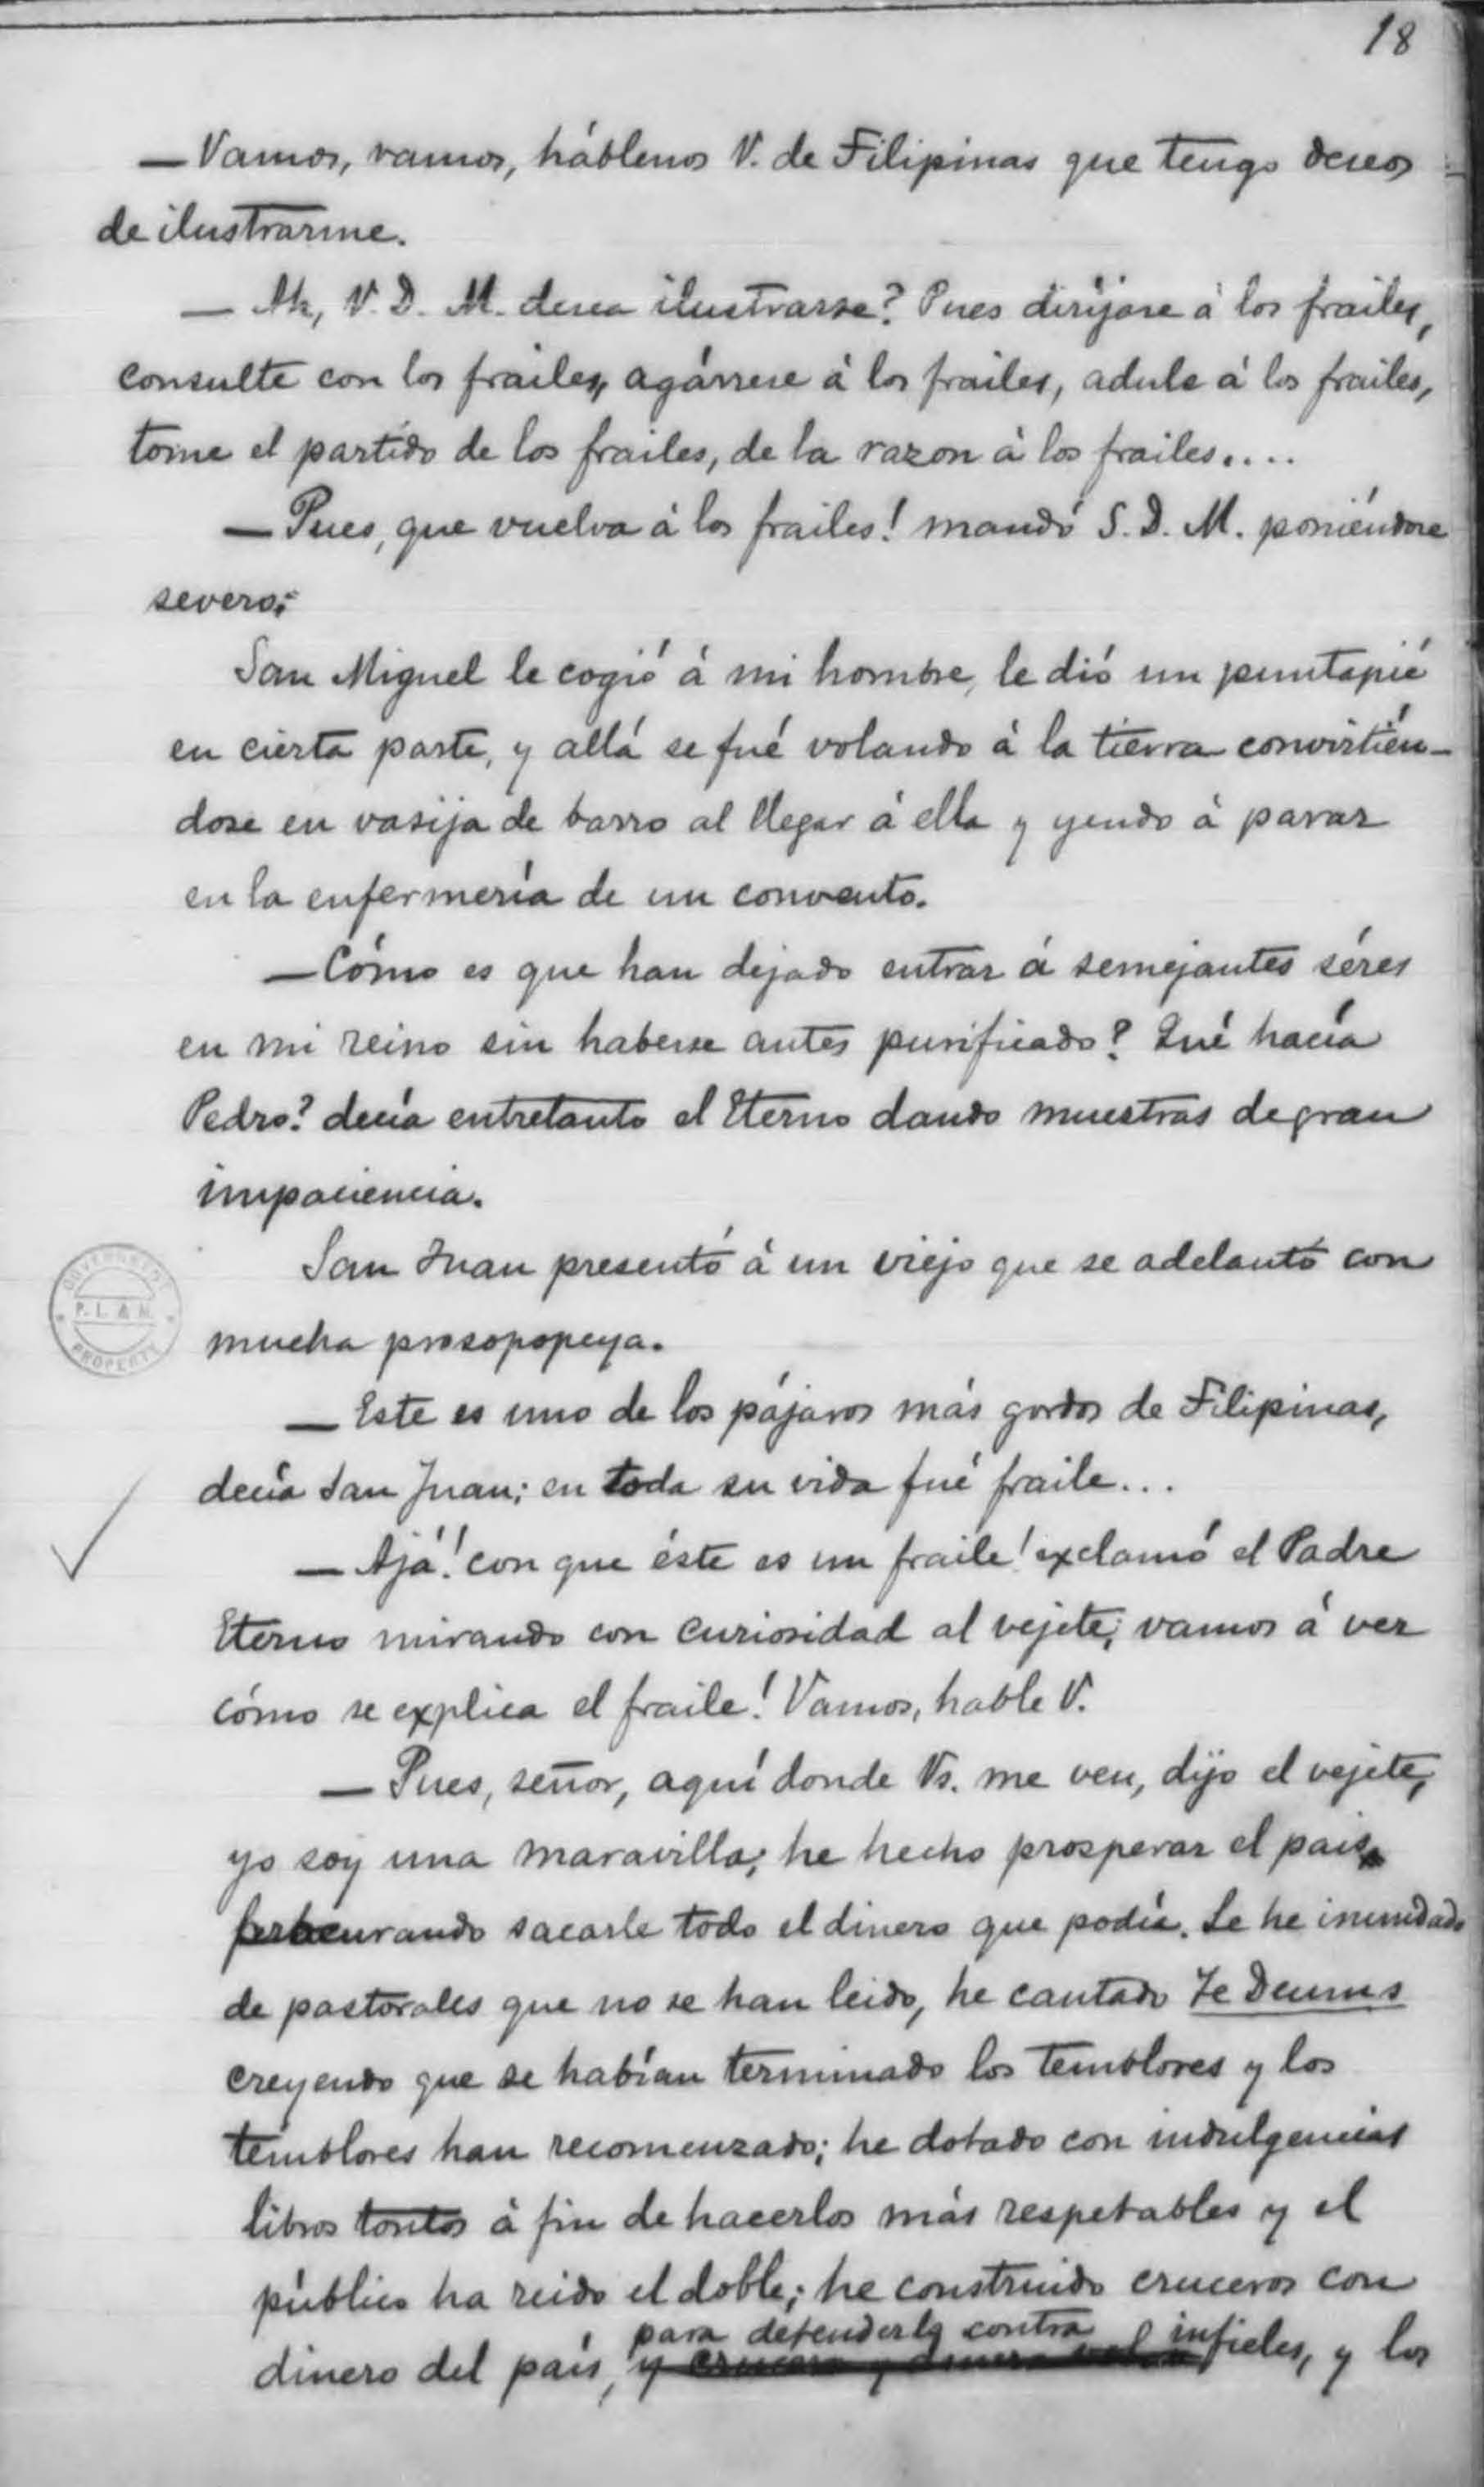 18
— Vamos, vamos, háblenos V. de Filipinas que tengo deseos
de ilustrarme.
— Ah, V. D. M. desea ilustrarse? Pues diríjase á los frailes,
consulte con los frailes, agárrese á los frailes, adule á los frailes,
tome el partido de los frailes, de la razon á los frailes....
— Pues, que vuelva á los frailes! mandó S. D. M. poniéndose
severo.
San Miguel le cogió á mi hombre, le dió un puntapié
en cierta parte, y allá se fué volando á la tierra convirtién-
dose en vasija de barro al llegar á ella y yendo á parar
en la enfermería de un convento.
— Cómo es que han dejado entrar á semejantes séres
en mi reino sin haberse antes purificado? Qué hacía
Pedro? decía entretanto el Eterno dando muestras de gran
impaciencia.
San Juan presentó á un viejo que se adelantó con
mucha prosopopeya.
GOVERNMENT
P.L. & M.
PROPERTY
— Este es uno de los pájaros más gordos de Filipinas,
decía San Juan; en toda su vida fué fraile...
— Ajá! con que éste es un fraile! exclamó el Padre
Eterno mirando con curiosidad al vejete; vamos á ver
cómo se explica el fraile! Vamos, hable V.
— Pues, señor, aquí donde Vs. me ven, dijo el vejete,
yo soy una maravilla; he hecho prosperar el pais
procurando sacarle todo el dinero que podía. Le he inundado
de pastorales que no se han leido, he cantado Te Deums
creyendo que se habían terminado los temblores y los
temblores han recomenzado; he dotado con indulgencias
libros tontos á fin de hacerlos más respetables y el
público ha reido el doble; he construido cruceros con
para defenderlo contra infieles, y los
dinero del país,